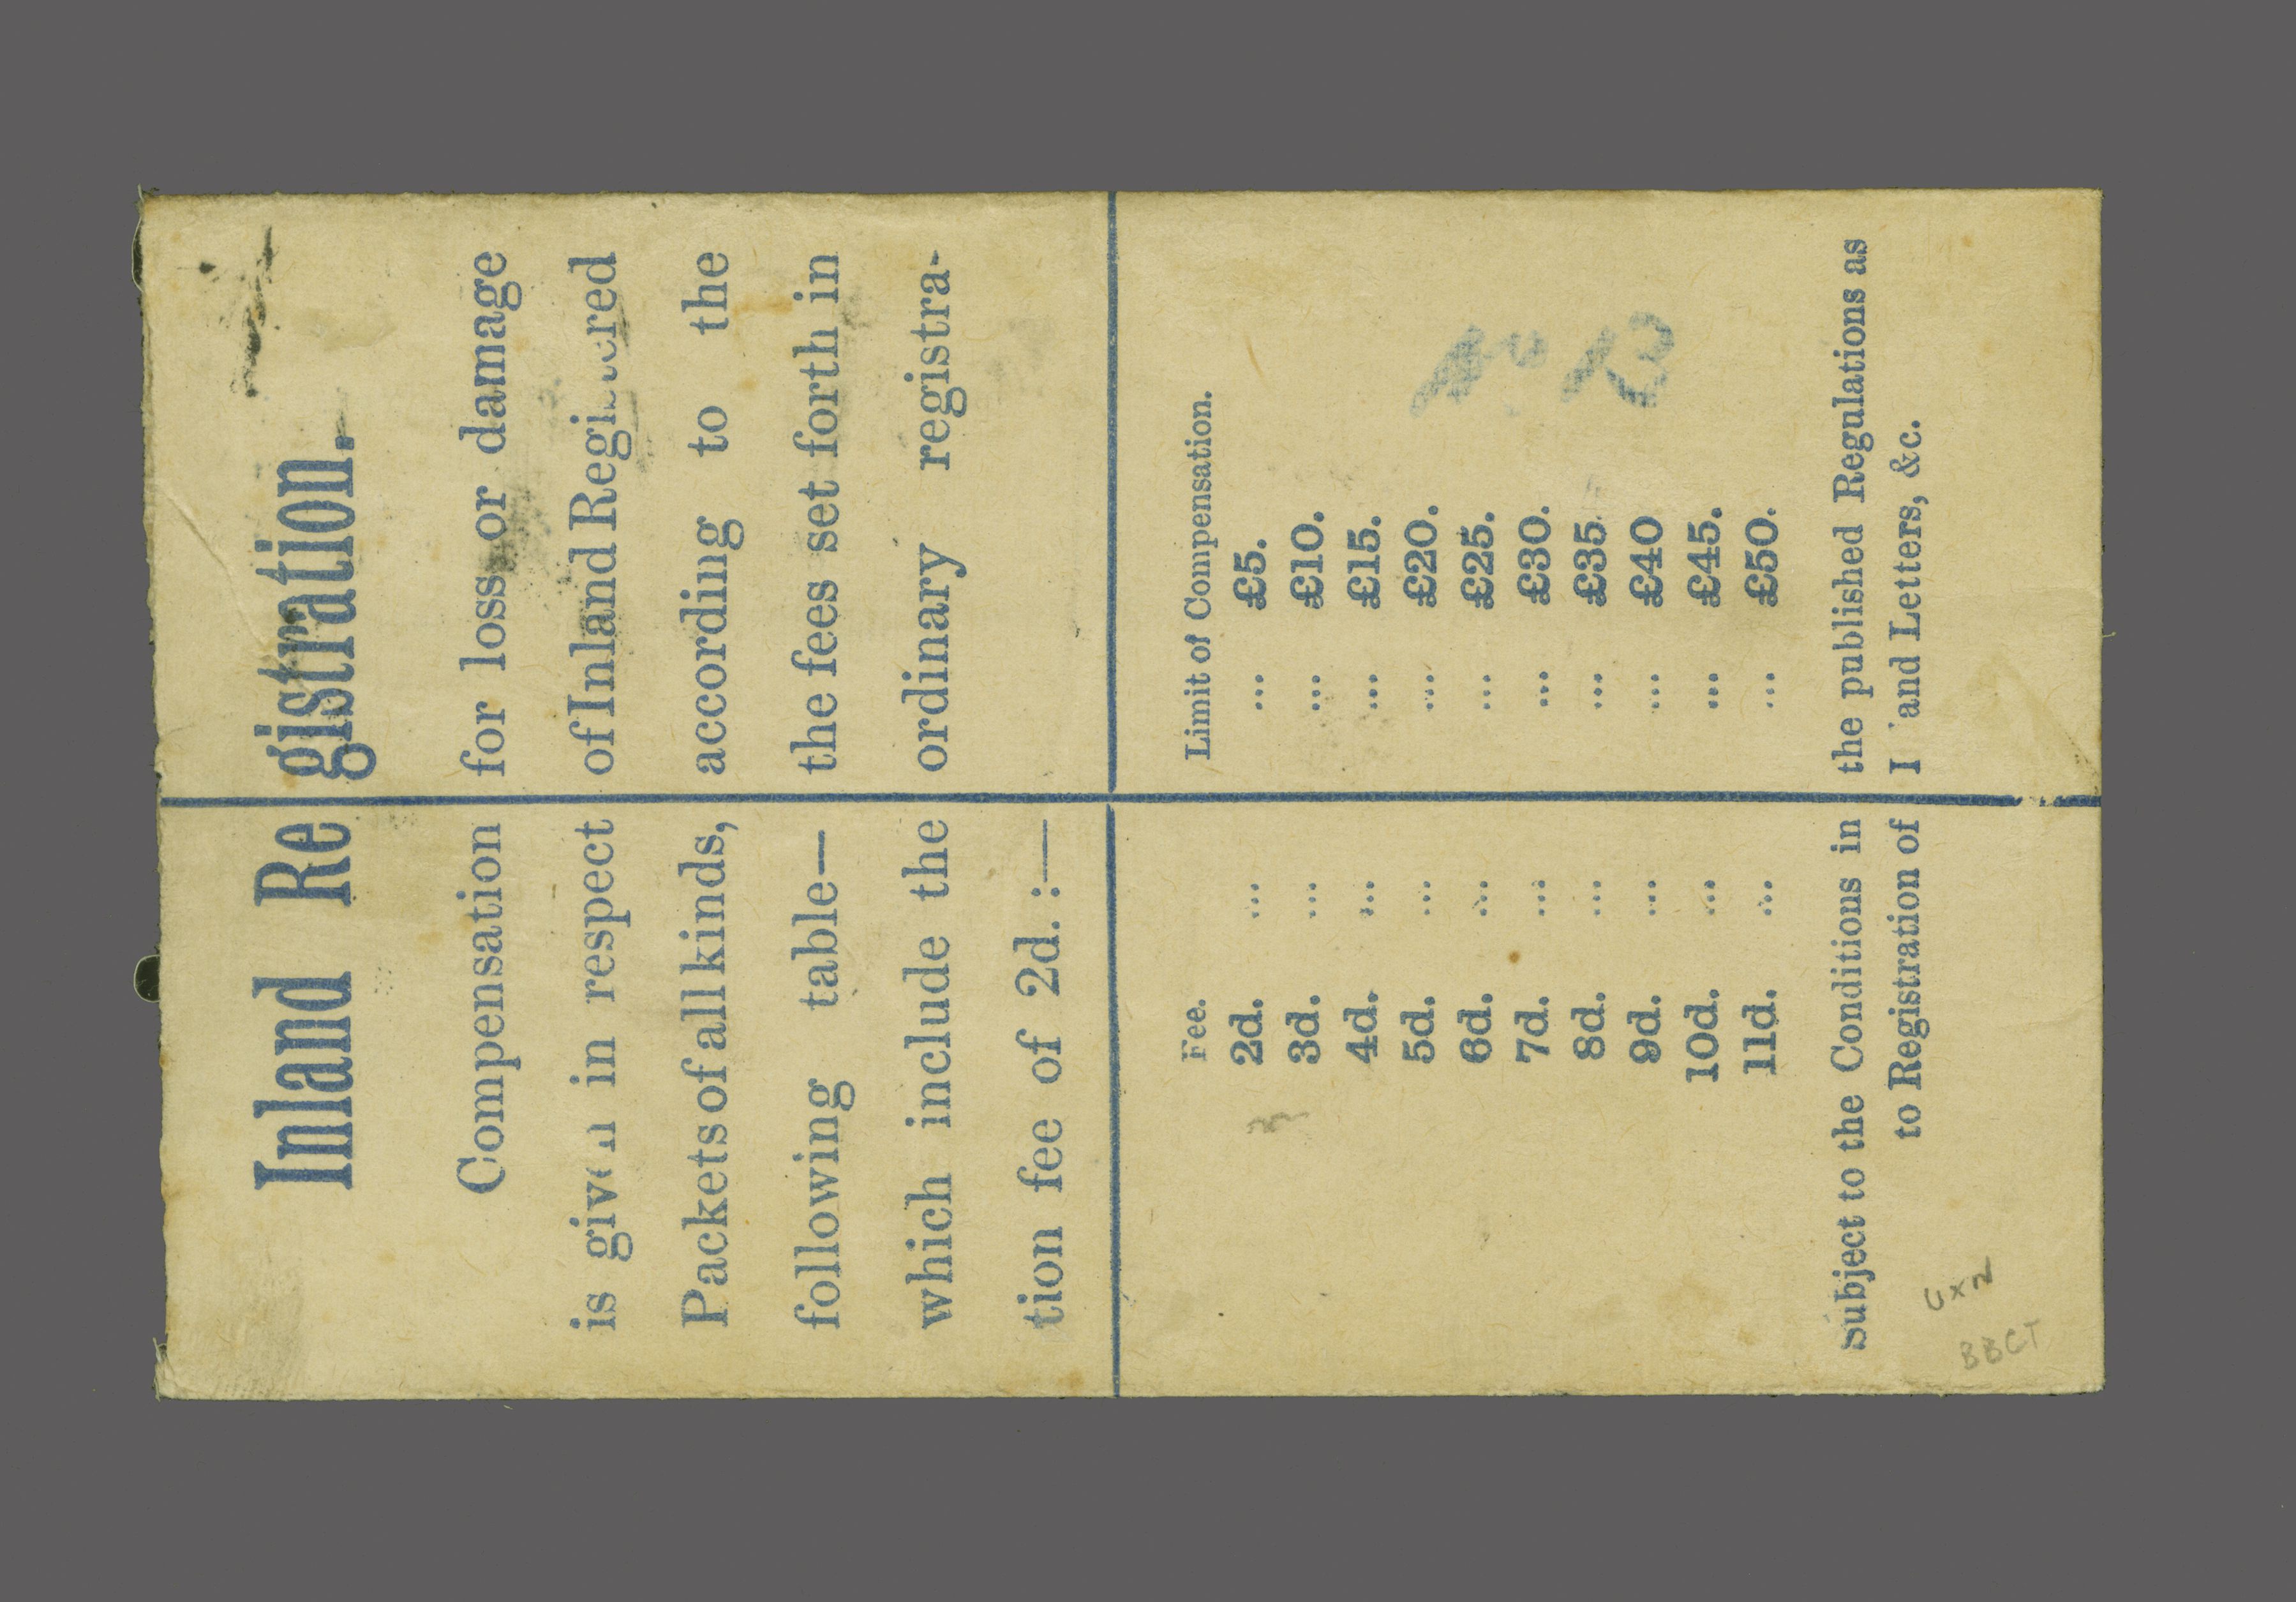 Inland Registration.
Compensation for loss or damage
is given in respect of Inland Registered
Packets of all kinds, according to the
following table— the fees set forth in
which include the ordinary registra-
tion fee of 2d. :—
Fee. Limit of Compensation.
2d. ... ... £5.
3d. ... ... £10.
4d. ... ... £15.
5d. ... ... £20.
6d. ... ... £25.
7d. ... ... £30.
8d. ... ... £35
9d. ... ... £40
10d. ... ... £45.
11d. ... ... £50.
Subject to the Conditions in the published Regulations as
to Registration of Inland Letters, &c.
UXN
BBCT